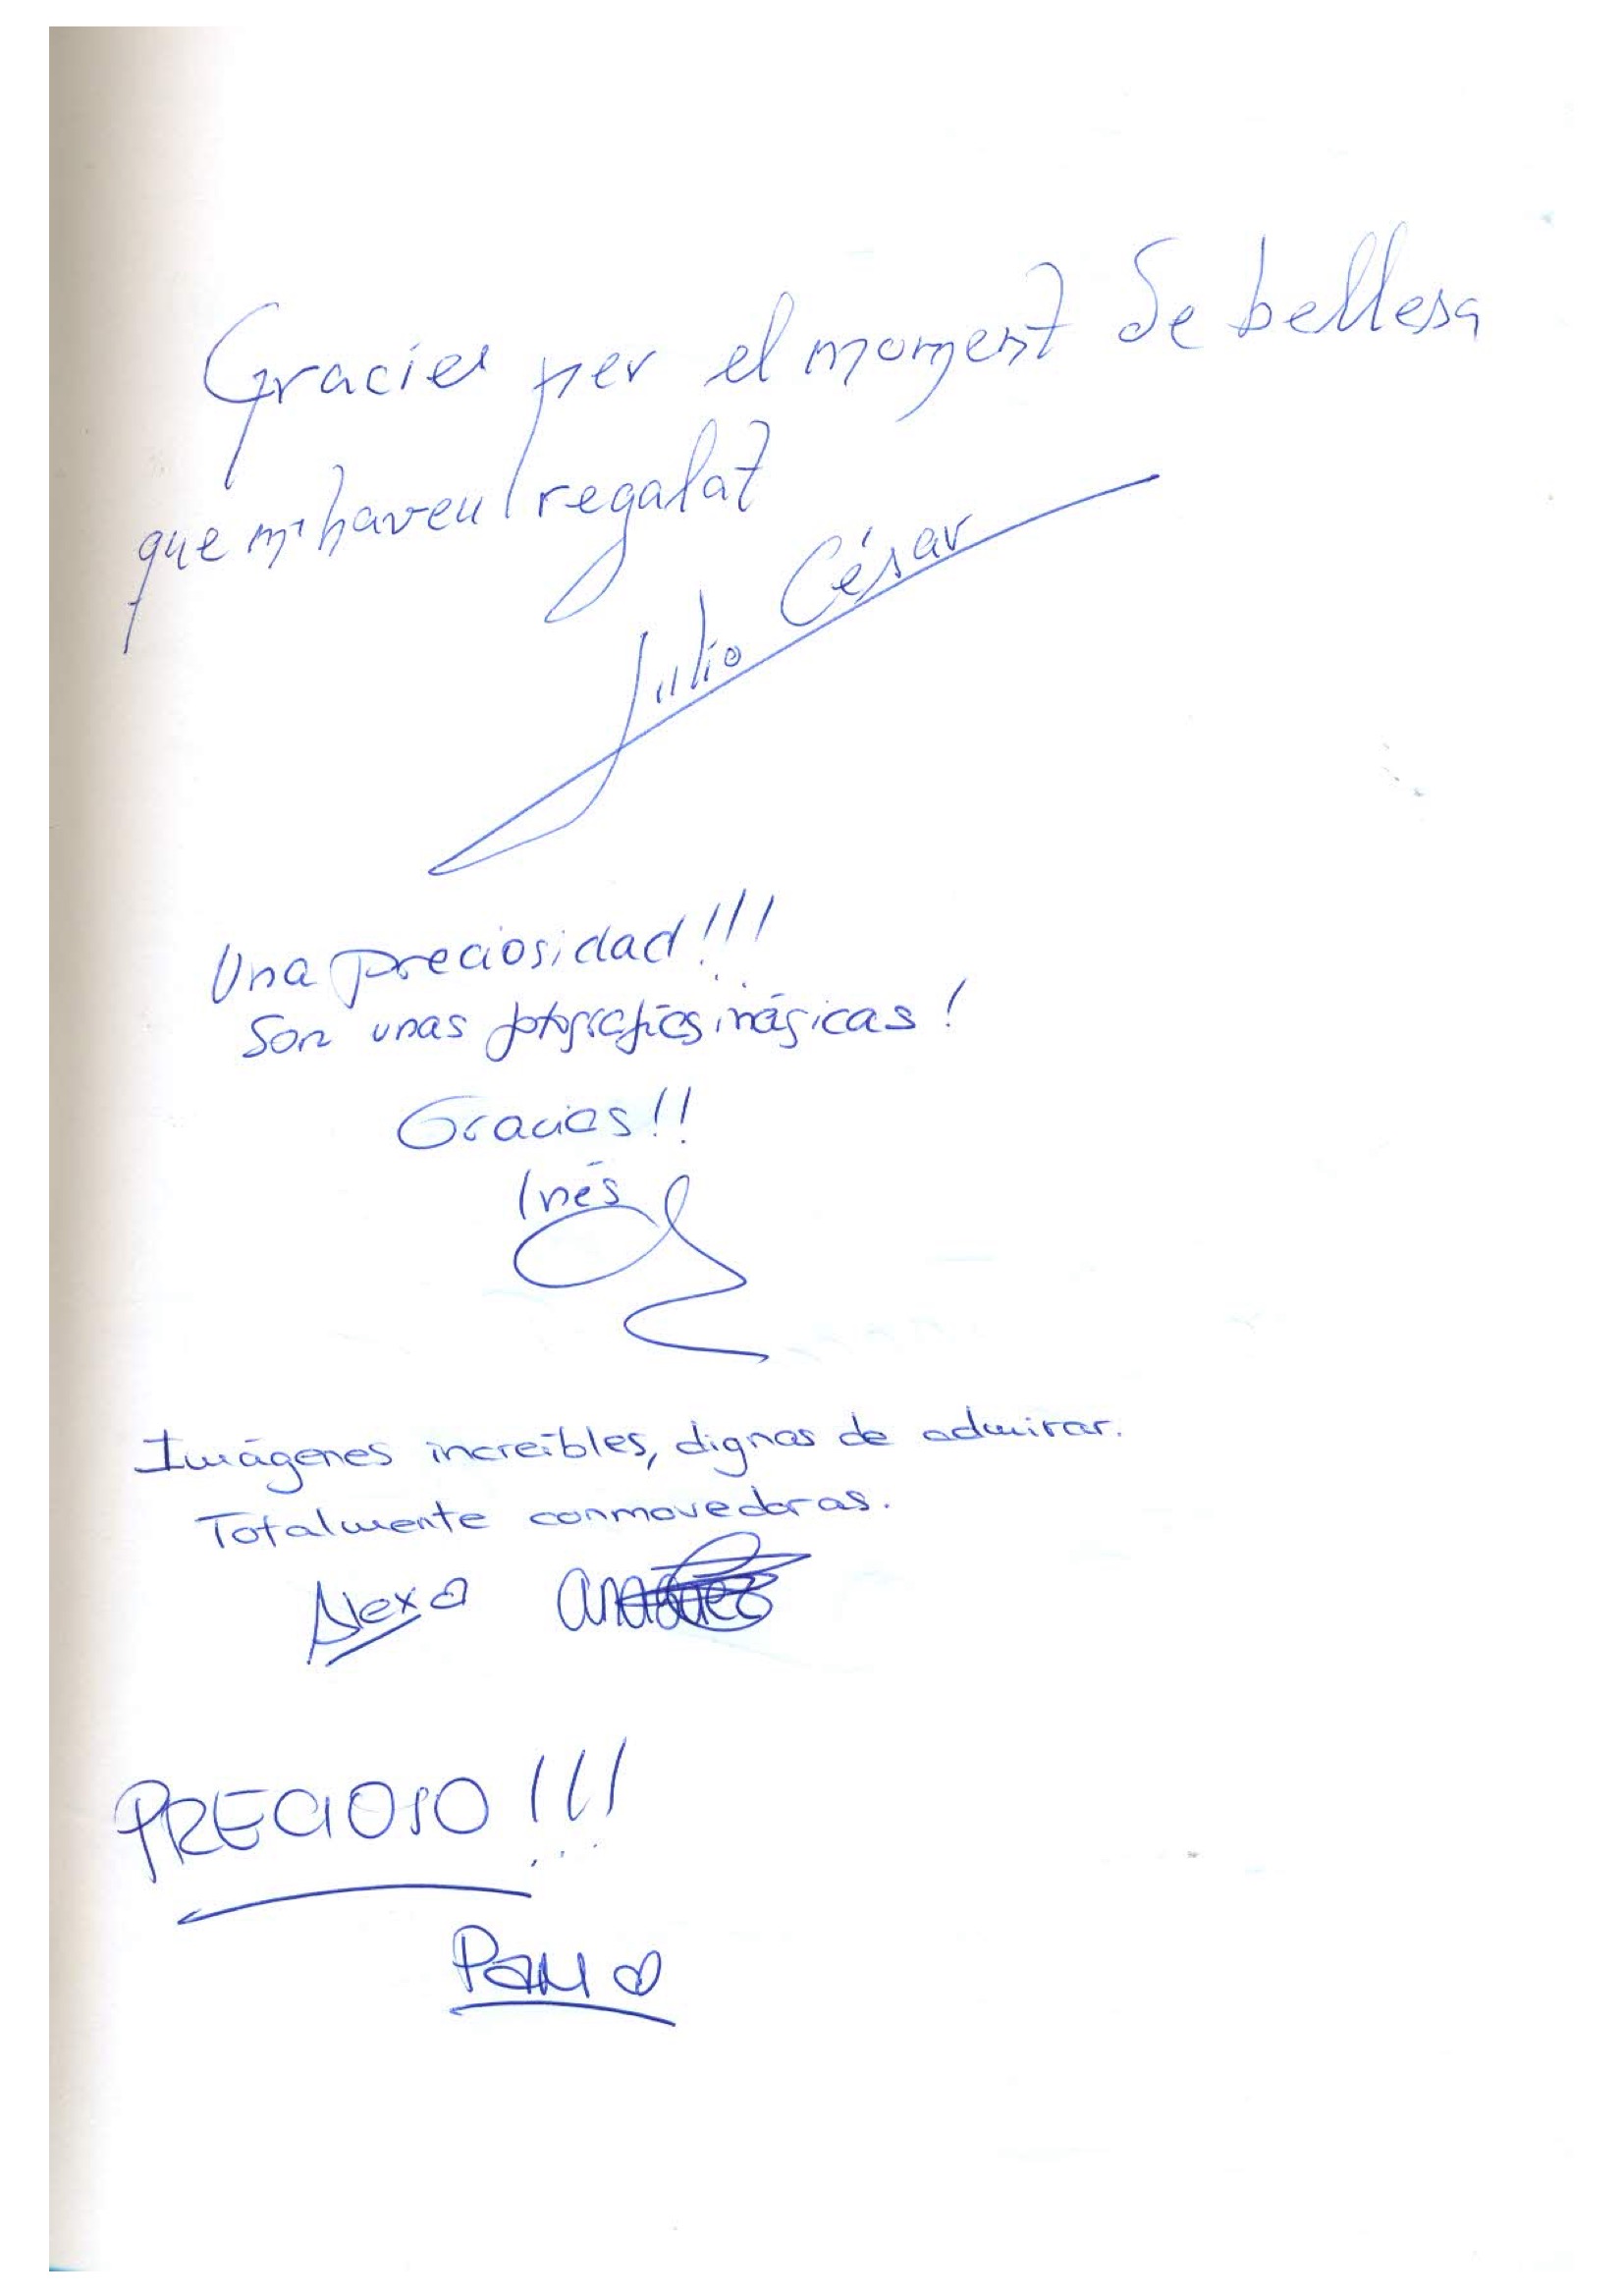 Gracies per el moment de bellesa
que m'haveu regalat
Julio César
Una preciosidad!!!
Son unas fotografías mágicas!
Gracias!!
Inés
Imágenes increíbles, dignas de admirar.
Totalmente conmovedoras.
Alexa
PRECIOSO!!!